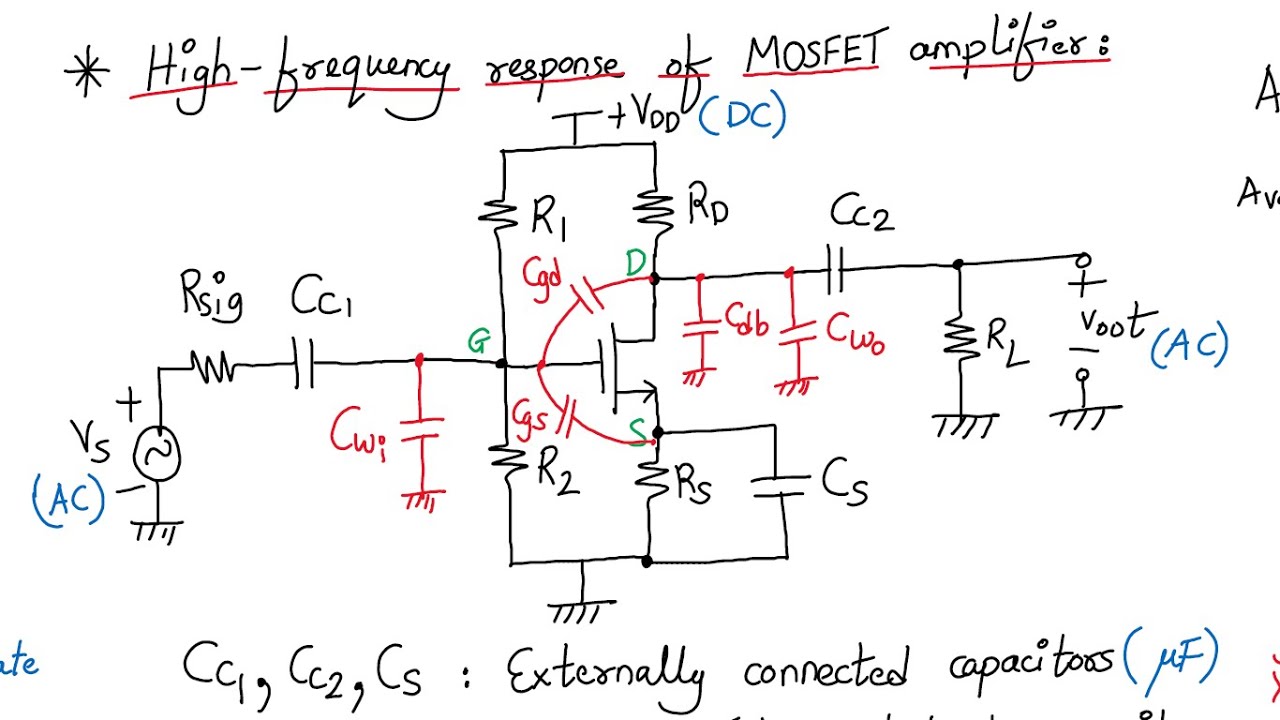 * High-frequency response of MOSFET amplifier:
+VDD (DC)
R1 RD CC2
D
Cgd
Rsig CC1
G Cdb Cwo RL
+
vout (AC)
-
+
Vs
(AC) -
Cwi
Cgs
S
R2 RS CS
CC1, CC2, CS : Externally connected capacitors (μF)